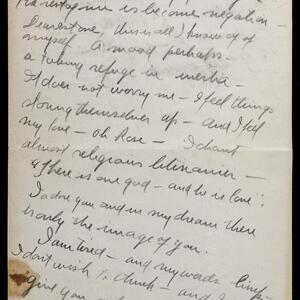 is become negation -
Dearest one, this is all I know of
myself. A mood perhaps -
a taking refuge in inertia -
It does not worry me - I feel things
storing themselves up - and I feel
my love - Oh Rose - I chant
almost religious litanies -
"There is one god - and he is love":
I adore you and in my dream there
is only the image of you.
I am tired - and my words limp -
I don't wish to think - and I
give you